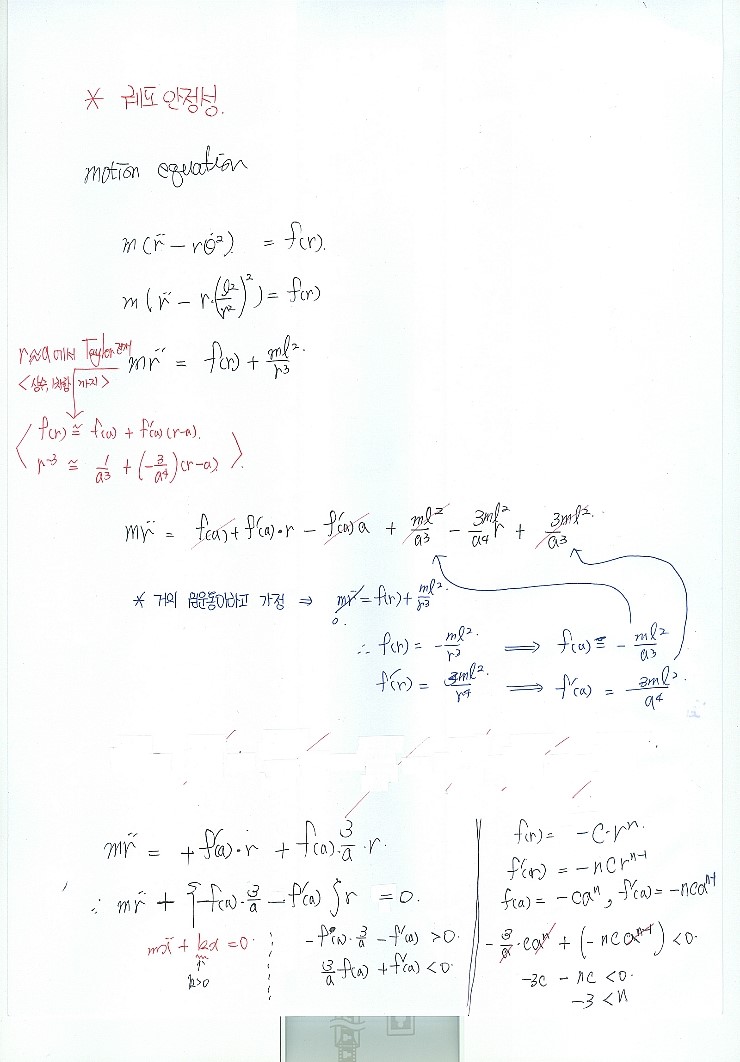 * 궤도 안정성.
motion equation
m(r̈ − rθ̇²) = f(r).
m(r̈ − r·(l²/r²)²) = f(r)
r≈a에서 Taylor 전개
<상수, 1차항 까지>
mr̈ = f(r) + ml²/r³
f(r) ≅ f(a) + f'(a)(r−a).
r⁻³ ≅ 1/a³ + (−3/a⁴)(r−a)
mr̈ = f(a) + f'(a)·r − f'(a)a + ml²/a³ − 3ml²/a⁴ r + 3ml²/a³
* 거의 원운동이라고 가정 ⇒ mr̈ = f(r) + ml²/r³
0.
∴ f(r) = −ml²/r³ ⟹ f(a) = −ml²/a³
f'(r) = 3ml²/r⁴ ⟹ f'(a) = 3ml²/a⁴
mr̈ = +f'(a)·r + f(a)·3/a·r.
∴ mr̈ + {−f(a)·3/a − f'(a)}r = 0.
mẍ + kx = 0.
k>0
−f(a)·3/a − f'(a) > 0.
3/a f(a) + f'(a) < 0.
f(r) = −c·rⁿ.
f'(r) = −ncrⁿ⁻¹
f(a) = −caⁿ, f'(a) = −ncaⁿ⁻¹
−3/a·caⁿ + (−ncaⁿ⁻¹) < 0.
−3c − nc < 0.
−3 < n